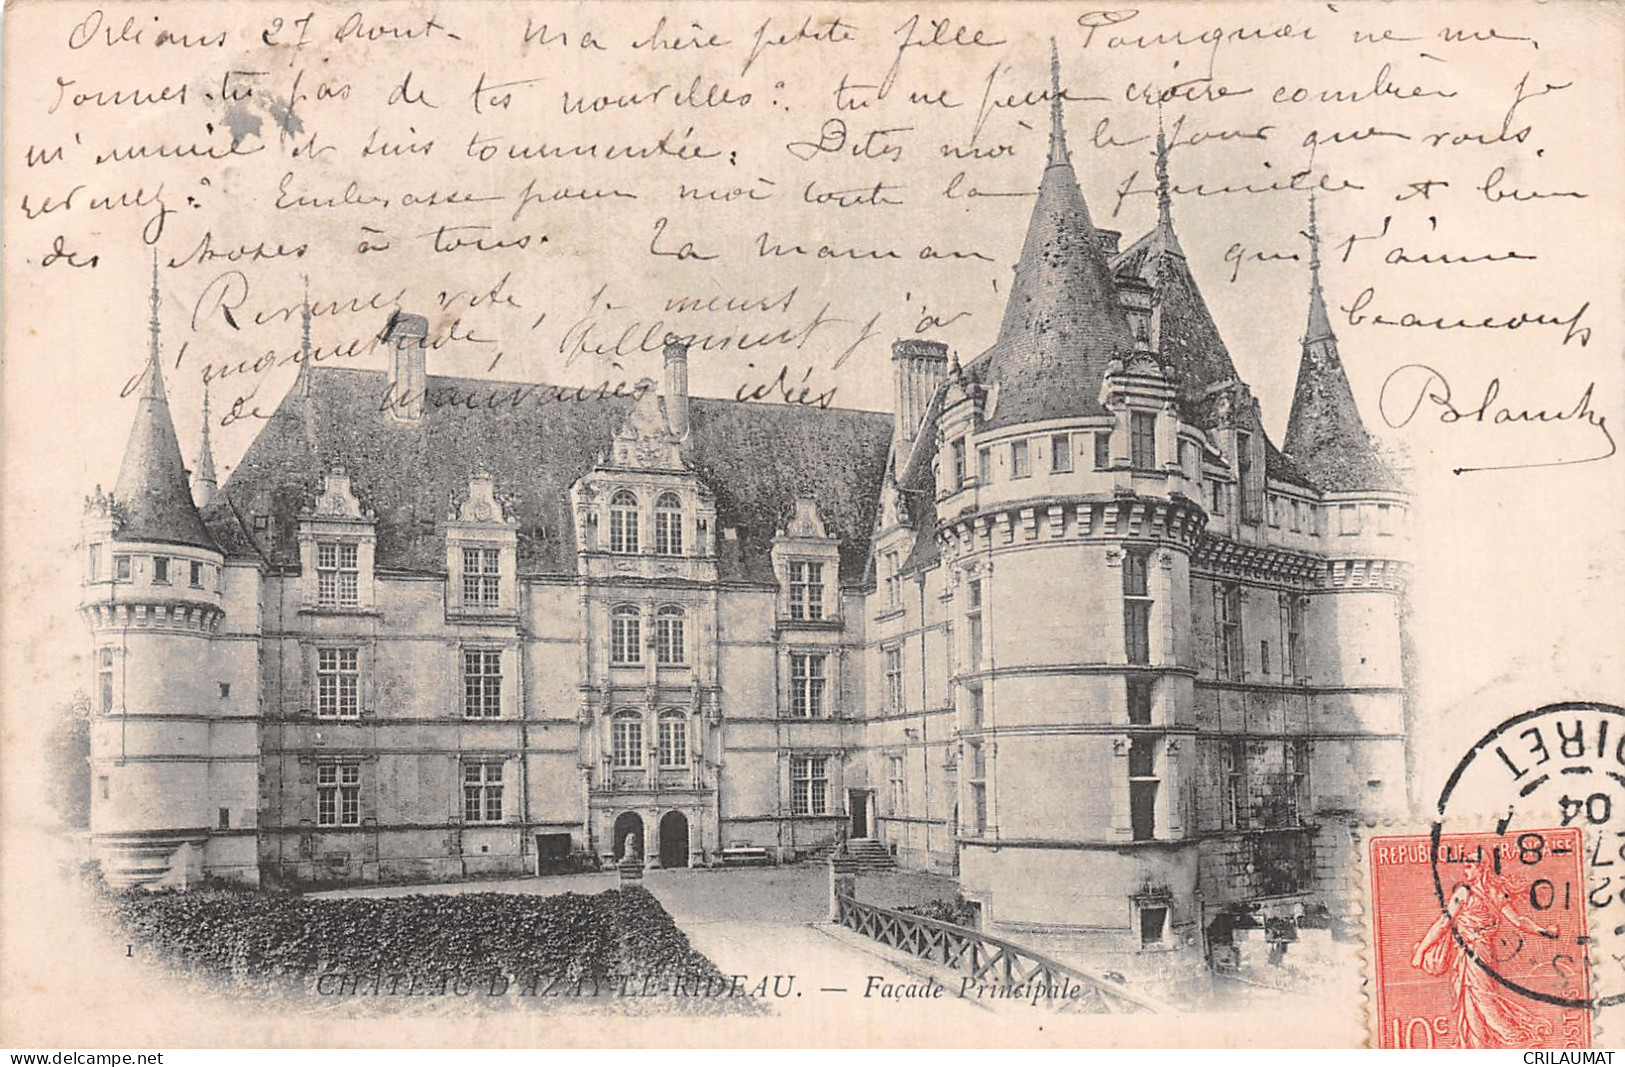 Orléans 27 Aout - Ma chère petite fille Pourquoi ne me
donnes-tu pas de tes nouvelles? tu ne peux croire combien je
m'ennuie et suis tourmentée. Dites moi le jour que vous
revenez? Embrasse pour moi toute la famille et bien
des choses à tous. Ta maman qui t'aime
beaucoup
Revenez vite, je meurs
d'inquiétude, tellement j'ai
de mauvaises idées
Blanche
1
CHÂTEAU D'AZAY-LE-RIDEAU. — Façade Principale
LOIRET
04
27 -8
10
REPUBLIQUE FRANÇAISE
10c
POSTES
CRILAUMAT